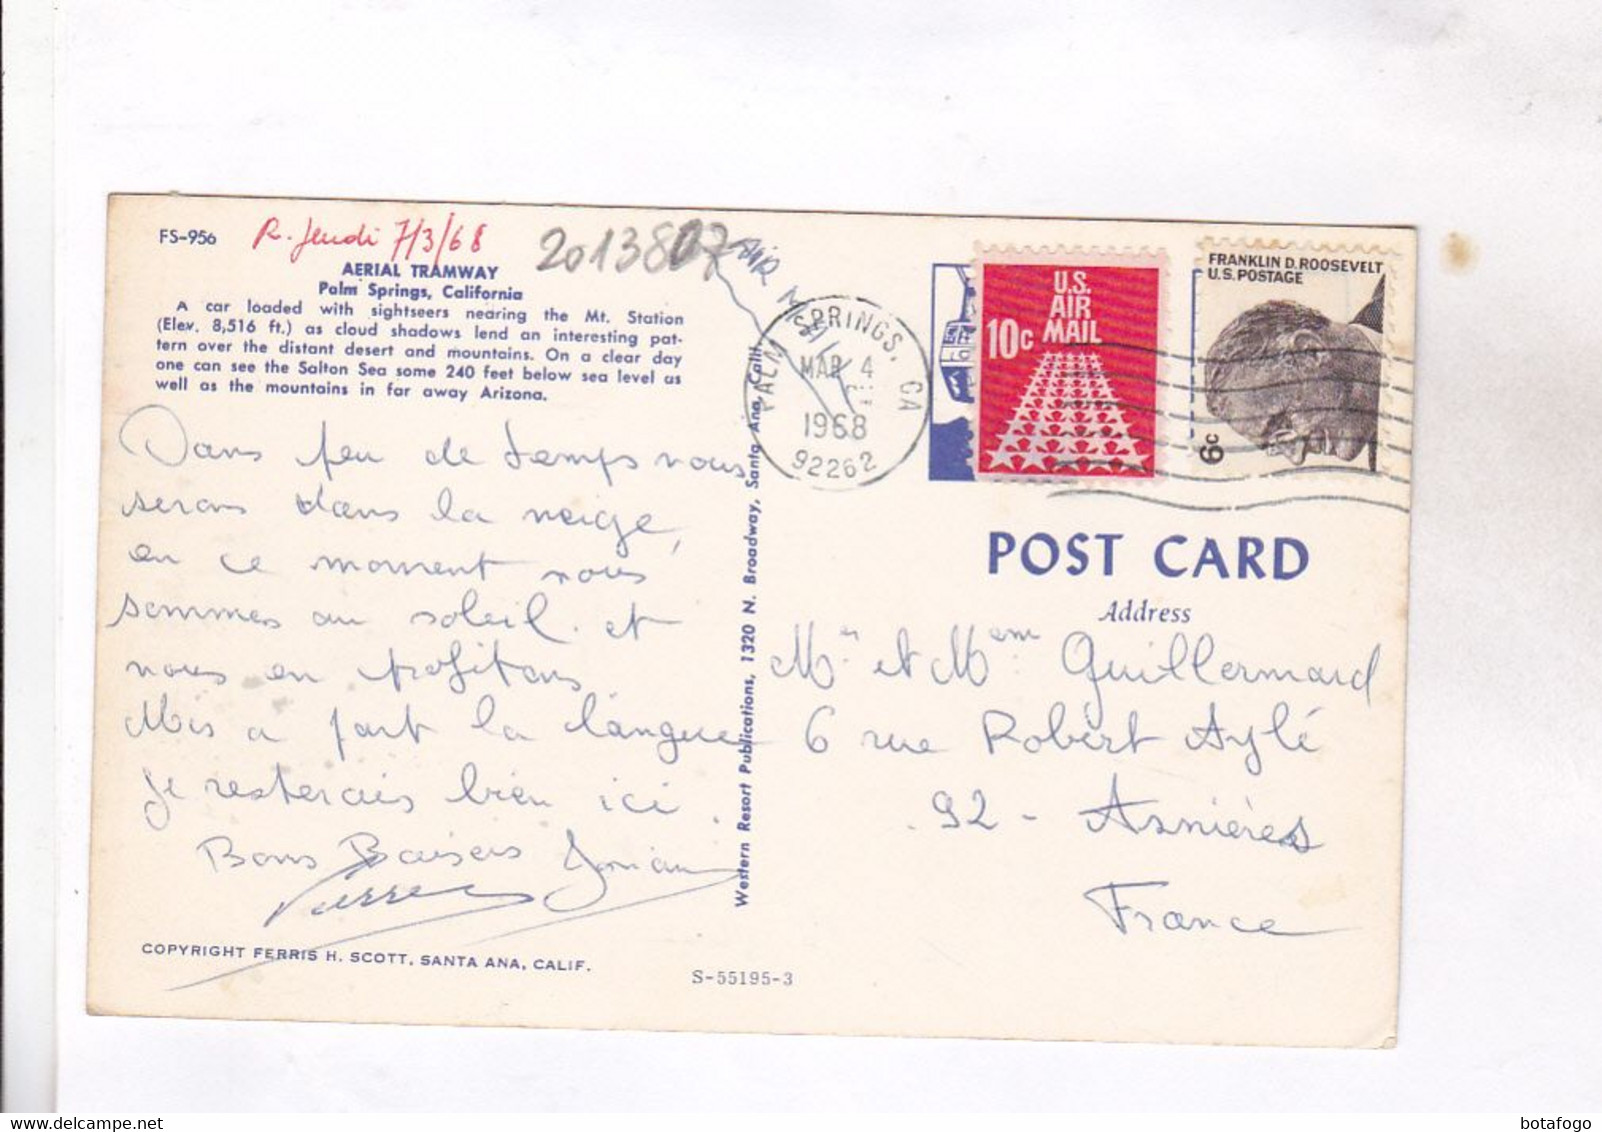 FS-956
R. Jeudi 7/3/68
2013807
AERIAL TRAMWAY
Palm Springs, California
A car loaded with sightseers nearing the Mt. Station
(Elev. 8,516 ft.) as cloud shadows lend an interesting pat-
tern over the distant desert and mountains. On a clear day
one can see the Salton Sea some 240 feet below sea level as
well as the mountains in far away Arizona.
Dans peu de temps nous
serons dans la neige,
en ce moment nous
sommes au soleil. et
nous en profitons
Mis a part la langue
je resterais bien ici.
Bons Baisers
Pierre
COPYRIGHT FERRIS H. SCOTT, SANTA ANA, CALIF.
S-55195-3
Western Resort Publications, 1320 N. Broadway, Santa Ana, Calif.
AIR MAIL
PALM SPRINGS, CA
MAR 4
1968
92262
U.S.
AIR
MAIL
10c
FRANKLIN D. ROOSEVELT
U.S. POSTAGE
6c
POST CARD
Address
Mr et Mem Guillermard
6 rue Robert Aylé
92 - Asnières
France
botafogo